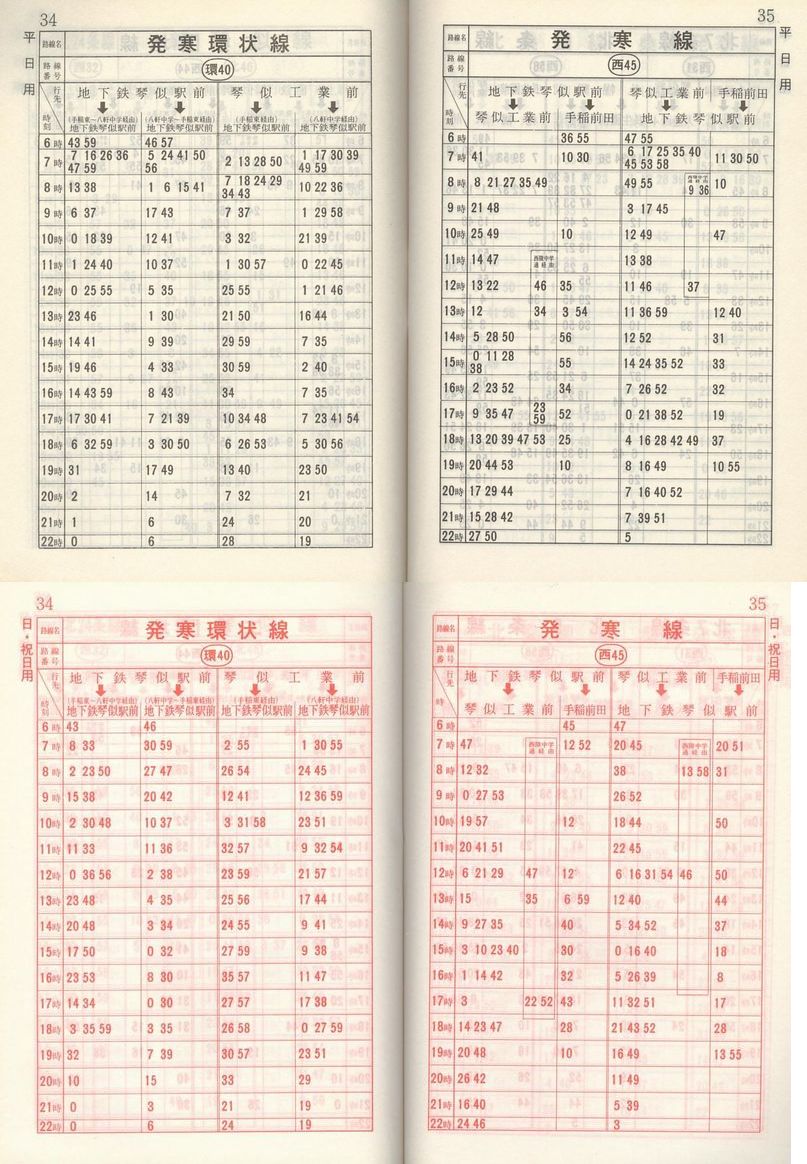 34
平日用
路線名 発寒環状線
路線番号 環40
行先 時刻
地下鉄琴似駅前 琴似工業前
(手稲東~八軒中学経由) (八軒中学~手稲東経由) (手稲東経由) (八軒中学経由)
地下鉄琴似駅前 地下鉄琴似駅前 地下鉄琴似駅前 地下鉄琴似駅前
6時 43 59 46 57
7時 7 16 26 36 47 59 5 24 41 50 56 2 13 28 50 1 17 30 39 49 59
8時 13 38 1 6 15 41 7 18 24 29 34 43 10 22 36
9時 6 37 17 43 7 37 1 29 58
10時 0 18 39 12 41 3 32 21 39
11時 1 24 40 10 37 1 30 57 0 22 45
12時 0 25 55 5 35 25 55 1 21 46
13時 23 46 1 30 21 50 16 44
14時 14 41 9 39 29 59 7 35
15時 19 46 4 33 30 59 2 40
16時 14 43 59 8 43 34 7 35
17時 17 30 41 7 21 39 10 34 48 7 23 41 54
18時 6 32 59 3 30 50 6 26 53 5 30 56
19時 31 17 49 13 40 23 50
20時 2 14 7 32 21
21時 1 6 24 20
22時 0 6 28 19
35
平日用
路線名 発寒線
路線番号 西45
行先 時刻
地下鉄琴似駅前 琴似工業前 手稲前田
琴似工業前 手稲前田 地下鉄琴似駅前
6時 36 55 47 55
7時 41 10 30 6 17 25 35 40 45 53 58 11 30 50
8時 8 21 27 35 49 49 55 西陵中学 9 36 10
9時 21 48 3 17 45
10時 25 49 10 12 49 47
11時 14 47 西陵中学通経由 13 38
12時 13 22 46 35 11 46 37
13時 12 34 3 54 11 36 59 12 40
14時 5 28 50 56 12 52 31
15時 0 11 28 38 55 14 24 35 52 33
16時 2 23 52 34 7 26 52 32
17時 9 35 47 23 59 52 0 21 38 52 19
18時 13 20 39 47 53 25 4 16 28 42 49 37
19時 20 44 53 10 8 16 49 10 55
20時 17 29 44 7 16 40 52
21時 15 28 42 7 39 51
22時 27 50 5
34
日・祝日用
路線名 発寒環状線
路線番号 環40
行先 時刻
地下鉄琴似駅前 琴似工業前
(手稲東~八軒中学経由) (八軒中学~手稲東経由) (手稲東経由) (八軒中学経由)
地下鉄琴似駅前 地下鉄琴似駅前 地下鉄琴似駅前 地下鉄琴似駅前
6時 43 46
7時 8 33 30 59 2 55 1 30 55
8時 2 23 50 27 47 26 54 24 45
9時 15 38 20 42 12 41 12 36 59
10時 2 30 48 10 37 3 31 58 23 51
11時 11 33 11 36 32 57 9 32 54
12時 0 36 56 2 38 23 59 21 57
13時 23 48 4 35 25 56 17 44
14時 20 48 3 34 24 55 9 41
15時 17 50 0 32 27 59 9 38
16時 23 53 8 30 35 57 11 47
17時 14 34 0 30 27 57 17 38
18時 3 35 59 3 35 26 58 0 27 59
19時 32 7 39 30 57 23 51
20時 10 15 33 29
21時 0 3 21 19
22時 0 6 24 19
35
日・祝日用
路線名 発寒線
路線番号 西45
行先 時刻
地下鉄琴似駅前 琴似工業前 手稲前田
琴似工業前 手稲前田 地下鉄琴似駅前
6時 45 47
7時 47 西陵中学通経由 12 52 20 45 西陵中学通経由 20 51
8時 12 32 38 13 58 31
9時 0 27 53 26 52
10時 19 57 12 18 44 50
11時 20 41 51 22 45
12時 6 21 29 47 12 6 16 31 54 46 50
13時 15 35 6 59 12 40 44
14時 9 27 35 40 5 34 52 37
15時 3 10 23 40 30 0 16 40 18
16時 1 14 42 32 5 26 39 8
17時 3 22 52 43 11 32 51 17
18時 14 23 47 28 21 43 52 28
19時 20 48 10 16 49 13 55
20時 26 42 11 49
21時 16 40 5 39
22時 24 46 3